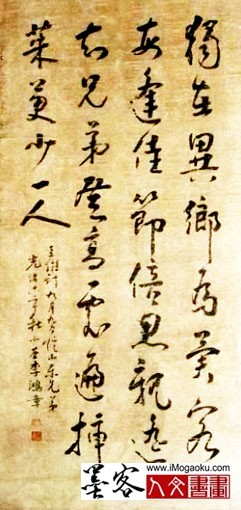 獨在異鄉為異客
每逢佳節倍思親遙
知兄弟登高處遍插
茱萸少一人
王維詩九月九日憶山東兄弟
光緒 李鴻章
墨客
www.iMogaoku.com
人文書畫